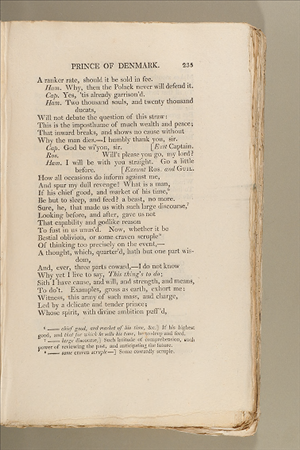 PRINCE OF DENMARK. 235
A ranker rate, should it be sold in fee.
Ham. Why, then the Polack never will defend it.
Cap. Yes, 'tis already garrison'd.
Ham. Two thousand souls, and twenty thousand
ducats,
Will not debate the question of this straw:
This is the imposthume of much wealth and peace;
That inward breaks, and shows no cause without
Why the man dies.—I humbly thank you, sir.
Cap. God be wi'you, sir. [Exit Captain.
Ros. Will't please you go, my lord?
Ham. I will be with you straight. Go a little
before. [Exeunt Ros. and Guil.
How all occasions do inform against me,
And spur my dull revenge! What is a man,
If his chief good, and market of his time,
Be but to sleep, and feed? a beast, no more.
Sure, he, that made us with such large discourse,
Looking before, and after, gave us not
That capability and godlike reason
To fust in us unus'd. Now, whether it be
Bestial oblivion, or some craven scruple
Of thinking too precisely on the event,—
A thought, which, quarter'd, hath but one part wis-
dom,
And, ever, three parts coward,—I do not know
Why yet I live to say, This thing's to do;
Sith I have cause, and will, and strength, and means,
To do't. Examples, gross as earth, exhort me:
Witness, this army of such mass, and charge,
Led by a delicate and tender prince;
Whose spirit, with divine ambition puff'd,
—— chief good, and market of his time, &c.] If his highest
good, and that for which he sells his time, be to sleep and feed.
—— large discourse,] Such latitude of comprehension, such
power of reviewing the past, and anticipating the future.
—— some craven scruple—] Some cowardly scruple.